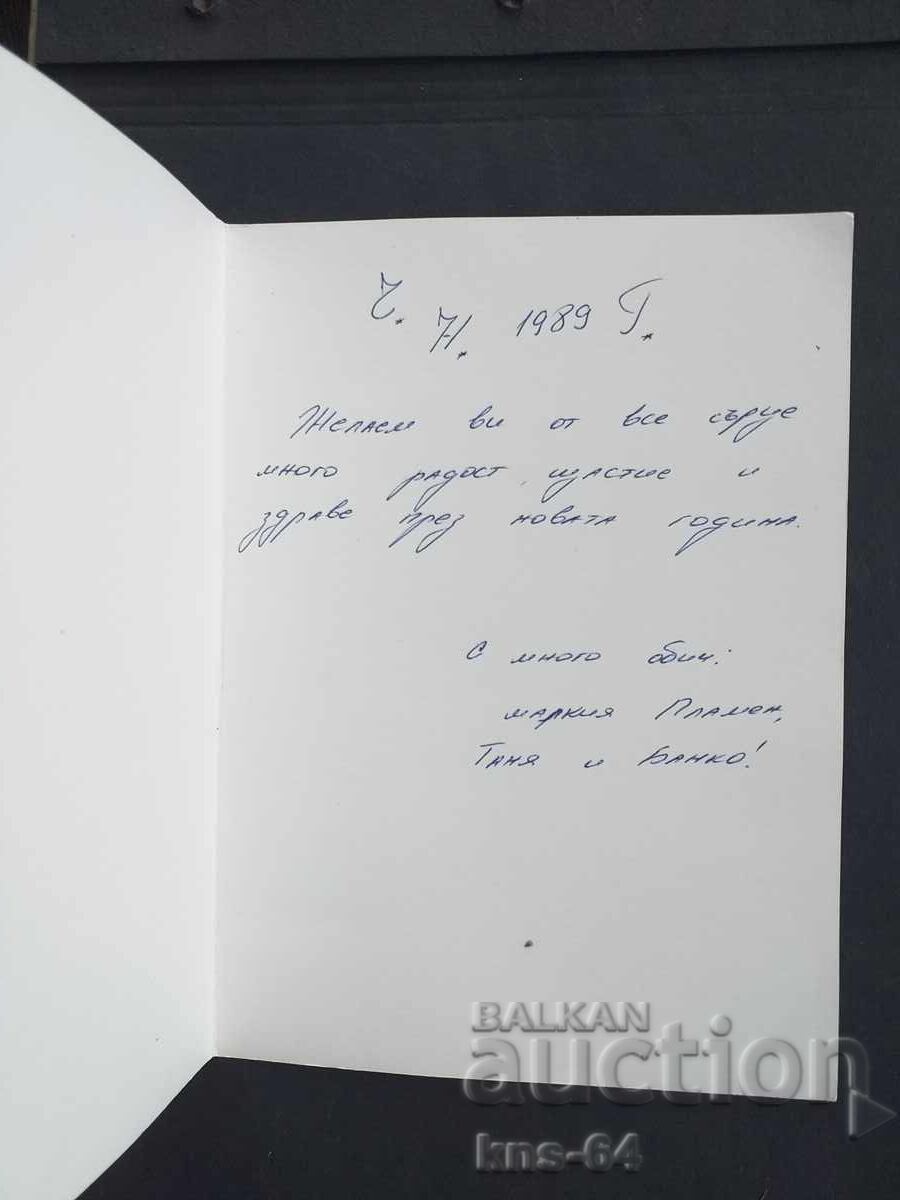 Ч. Н. 1989 Г.
Желаем ви от все сърце
много радост, щастие и
здраве през новата година.
С много обич:
маркия Пламен,
Таня и Банко!
BALKAN
auction
kns-64